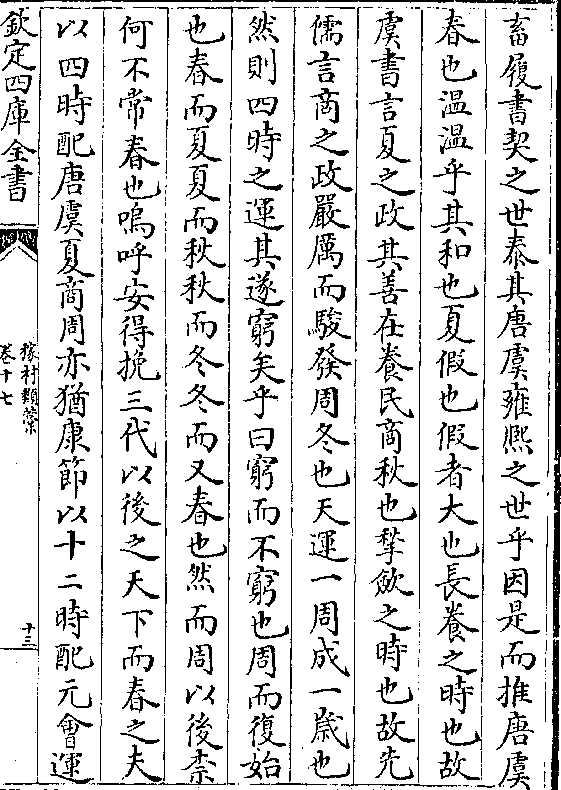 畜履書契之世泰其唐虞雍熈之世乎因是而推唐虞
春也温温乎其和也夏假也假者大也長養之時也故
虞書言夏之政其善在養民商秋也揫歛之時也故先
儒言商之政嚴厲而駿發周冬也天運一周成一歳也
然則四時之運其遂窮矣乎曰窮而不窮也周而復始
也春而夏夏而秋秋而冬冬而又春也然而周以後柰
何不常春也嗚呼安得挽三代以後之天下而春之夫
以四時配唐虞夏商周亦猶康節以十二時配元會運
欽定四庫全書
稼村類藁
卷十七
十三